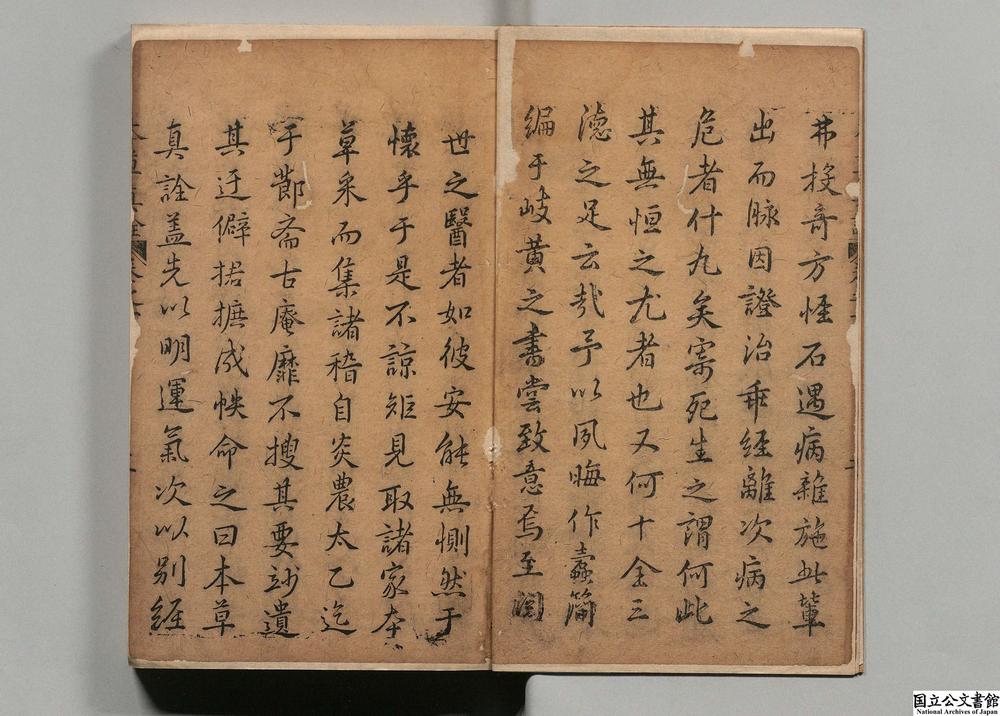 弗投奇方恠石遇病雜施此輩
出而脉因證治乖經離次病之
危者什九矣寄死生之謂何此
其無恒之尤者也又何十全三
德之足云哉予以夙晦作蠹簡
編于岐黄之書嘗致意焉至閱
世之醫者如彼安能無惻然于
懷乎于是不諒矩見取諸家本
草采而集諸稽自炎農太乙迄
于節斎古庵靡不搜其要竗遺
其迂僻捃摭成帙命之曰本草
真詮盖先以明運氣次以别經
国立公文書館
National Archives of Japan